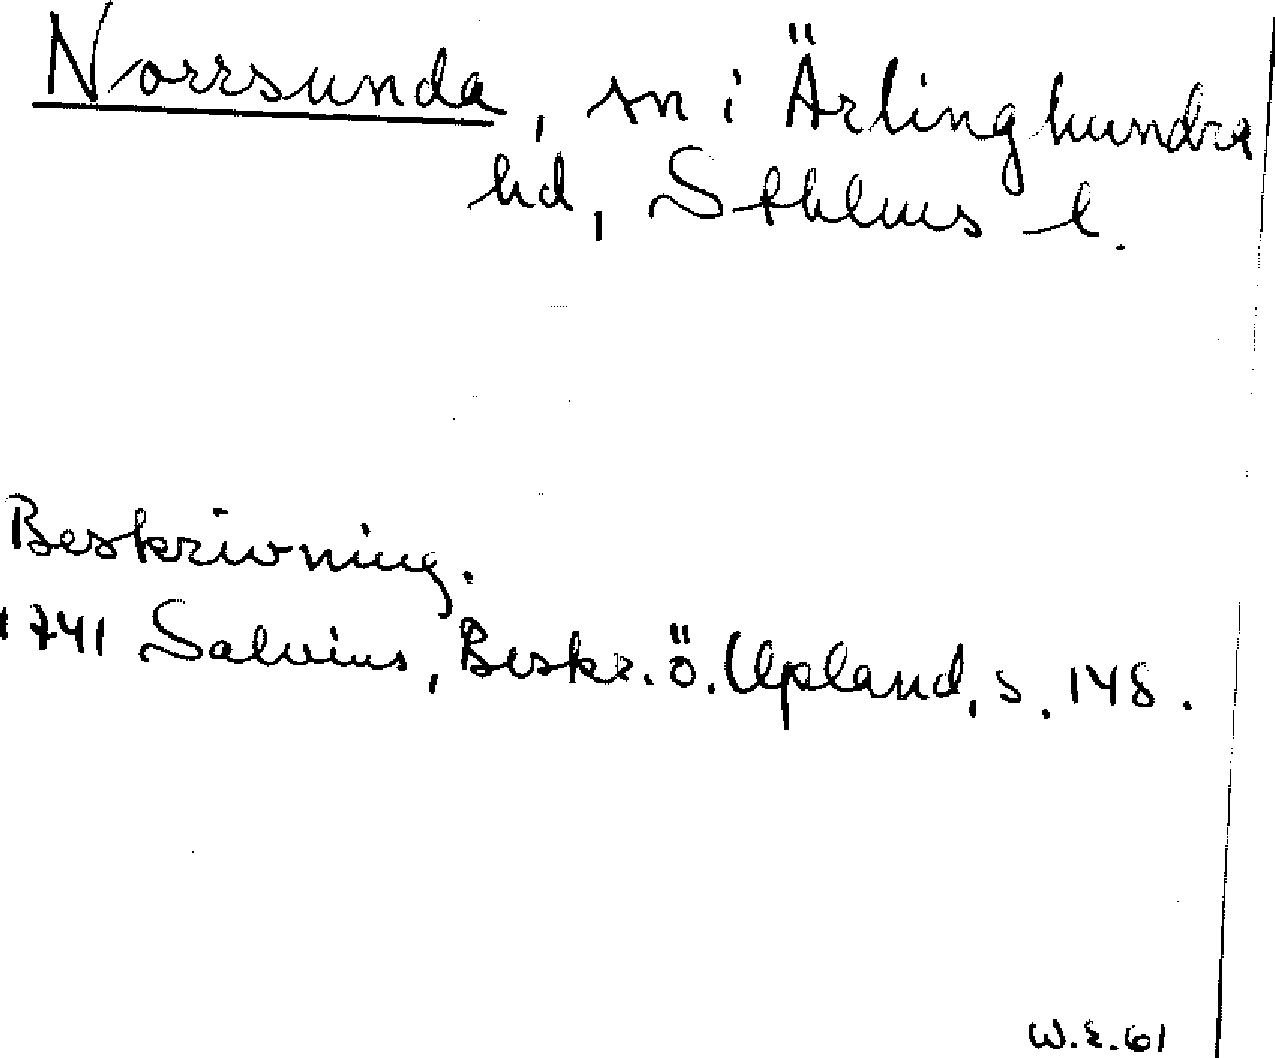 Norrsunda, sn i Ärlinghundra
hd, Sthlms l.
Beskrivning.
1741 Salvius, Beskr. ö. Upland, s. 148.
W.E.61